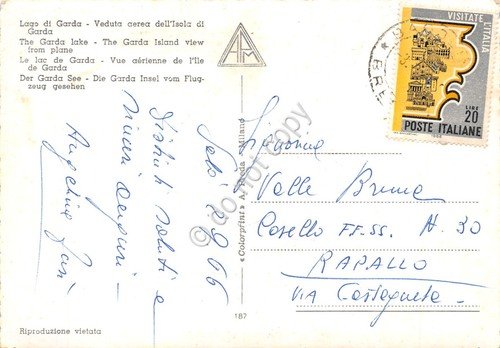 Lago di Garda - Veduta aerea dell'Isola di
Garda
The Garda lake - The Garda Island view
from plane
Le lac de Garda - Vue aérienne de l'Ile
de Garda
Der Garda See - Die Garda Insel vom Flug-
zeug gesehen
Salò 2 9 66
Distinti saluti e
sinceri auguri -
Angelina
Riproduzione vietata
187
«Colorprint» A. Milano
do not copy
VISITATE L'ITALIA
LIRE
20
POSTE ITALIANE
Signorina
Valle Bruna
Casello FF.SS. N. 30
RAPALLO
VIA Costaguta